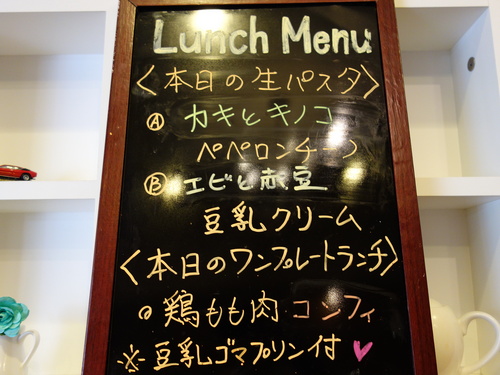 Lunch Menu
〈本日の生パスタ〉
Ⓐ カキとキノコ
ペペロンチーノ
Ⓑ エビと枝豆
豆乳クリーム
〈本日のワンプレートランチ〉
○ 鶏もも肉 コンフィ
※ 豆乳ゴマプリン付 ♥